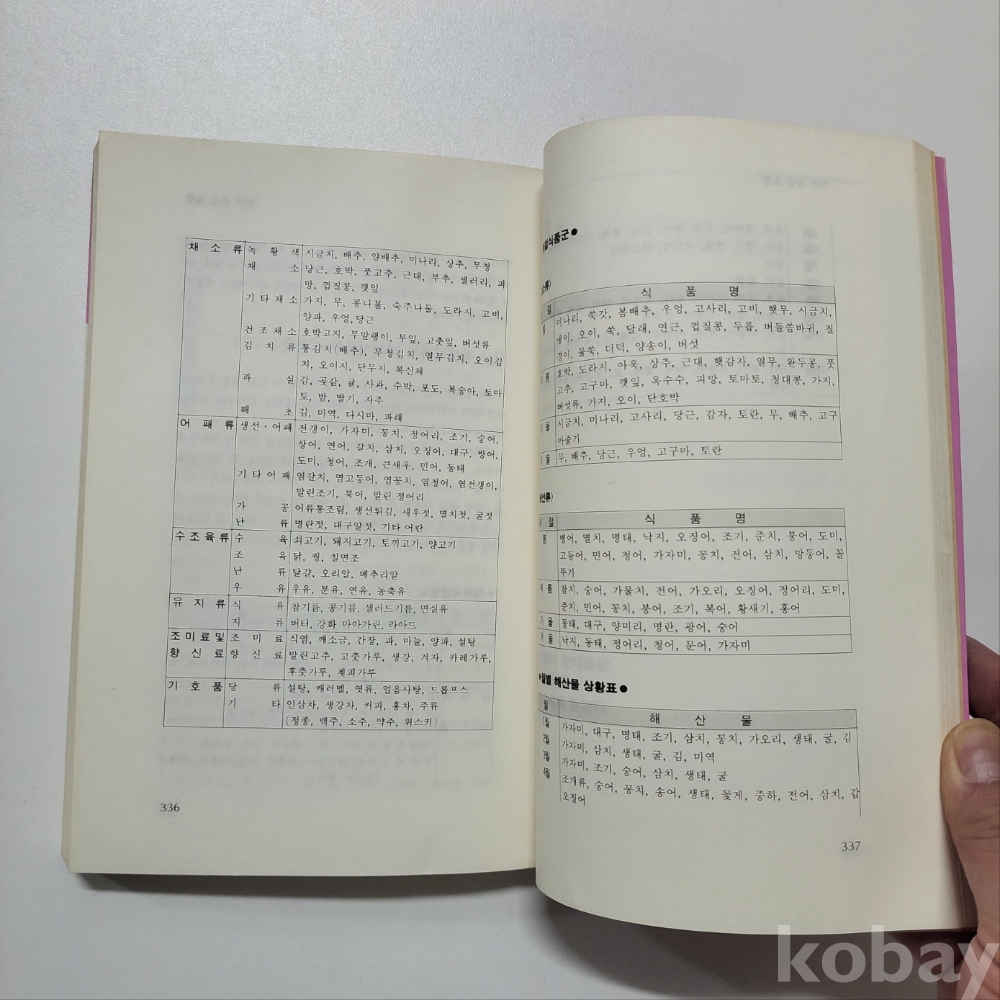 채 소 류 녹 황 색 시금치, 배추, 양배추, 미나리, 상추, 무청
채 소 당근, 호박, 풋고추, 근대, 부추, 셀러리, 피
망, 껍질콩, 깻잎
기타채소 가지, 무, 콩나물, 숙주나물, 도라지, 고비,
양파, 우엉,당근
건조채소 호박고지, 무말랭이, 무잎, 고춧잎, 버섯류
김 치 류 통김치(배추), 무청김치, 열무김치, 오이김
치, 오이지, 단무지, 복신채
과 실 감, 곶감, 귤, 사과, 수박, 포도, 복숭아, 토마
토, 밤, 딸기, 자주
해 초 김, 미역, 다시마, 파래
어 패 류 생선·어패 전갱이, 가자미, 꽁치, 정어리, 조기, 숭어,
상어, 연어, 갈치, 삼치, 오징어, 대구, 방어,
도미, 청어, 조개, 큰새우, 민어, 동태
기타어패 염갈치, 염고등어, 염꽁치, 염청어, 염전갱이,
말린조기, 북어, 말린 정어리
가 공 어류통조림, 생선튀김, 새우젓, 멸치젓, 굴젓
난 류 명란젓, 대구알젓, 기타 어란
수조육류 수 육 쇠고기, 돼지고기, 토끼고기, 양고기
조 육 닭, 꿩, 칠면조
난 류 달걀, 오리알, 메추리알
우 유 우유, 분유, 연유, 농축유
유 지 류 식 유 참기름, 콩기름, 샐러드기름, 면실유
지 류 버터, 강화 마아가린, 라아드
조미료및 조 미 료 식염, 깨소금, 간장, 파, 마늘, 양파, 설탕
향신료 향 신 료 말린고추, 고춧가루, 생강, 겨자, 카레가루,
후춧가루, 계피가루
기 호 품 당 류 설탕, 캐러멜, 엿류, 얼음사탕, 드롭프스
기 타 인삼차, 생강차, 커피, 홍차, 주류
(정종, 맥주, 소주, 약주, 위스키)
336
식품군●
절 식 품 명
미나리, 쑥갓, 봄배추, 우엉, 고사리, 고비, 햇무, 시금치,
냉이, 오이, 쑥, 달래, 연근, 껍질콩, 두릅, 버들씀바귀, 질
경이, 물쑥, 더덕, 양송이, 버섯
름 호박, 도라지, 아욱, 상추, 근대, 햇감자, 열무, 완두콩, 풋
고추, 고구마, 깻잎, 옥수수, 피망, 토마토, 청대콩, 가지,
버섯류, 가지, 오이, 단호박
을 시금치, 미나리, 고사리, 당근, 감자, 토란, 무, 배추, 고구
마줄기
울 무, 배추, 당근, 우엉, 고구마, 토란
절 식 품 명
봄 병어, 멸치, 명태, 낙지, 오징어, 조기, 준치, 붕어, 도미,
고등어, 민어, 청어, 가자미, 꽁치, 전어, 삼치, 망둥어, 꼴
뚜기
름 참치, 숭어, 가물치, 전어, 가오리, 오징어, 정어리, 도미,
준치, 민어, 꽁치, 붕어, 조기, 복어, 황새기, 홍어
가 을 동태, 대구, 양미리, 명란, 광어, 숭어
겨 울 낙지, 동태, 정어리, 청어, 문어, 가자미
●월별 해산물 상황표●
월 해 산 물
1월 가자미, 대구, 명태, 조기, 삼치, 꽁치, 가오리, 생태, 굴, 김
2월 가자미, 삼치, 생태, 굴, 김, 미역
3월 가자미, 조기, 숭어, 삼치, 생태, 굴
4월 조개류, 숭어, 꽁치, 송어, 생태, 꽃게, 중하, 전어, 삼치, 갑
오징어
337
kobay